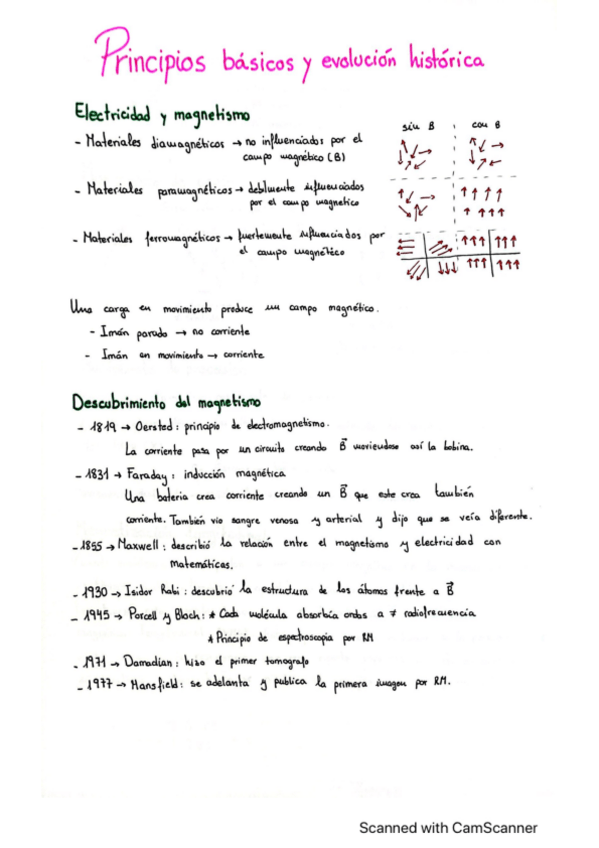 Principios básicos y evolución histórica
Electricidad y magnetismo
sin B con B
- Materiales diamagnéticos → no influenciados por el
campo magnético (B)
- Materiales paramagnéticos → debilmente influenciados
por el campo magnetico
- Materiales ferromagnéticos → fuertemente influenciados por
el campo magnético
Una carga en movimiento produce un campo magnético.
- Imán parado → no corriente
- Imán en movimiento → corriente
Descubrimiento del magnetismo
- 1819 → Oersted: principio de electromagnetismo.
La corriente pasa por un circuito creando B⃗ moviendose así la bobina.
- 1831 → Faraday: inducción magnética
Una bateria crea corriente creando un B⃗ que este crea también
corriente. También vio sangre venosa y arterial y dijo que se veía diferente.
- 1855 → Maxwell: describió la relación entre el magnetismo y electricidad con
matemáticas.
- 1930 → Isidor Rabi: descubrió la estructura de los átomos frente a B⃗
- 1945 → Porcell y Bloch: * Cada molécula absorbía ondas a ≠ radiofrecuencia
* Principio de espectroscopia por RM
- 1971 → Damadian: hizo el primer tomografo
- 1977 → Mansfield: se adelanta y publica la primera imagen por RM.
Scanned with CamScanner